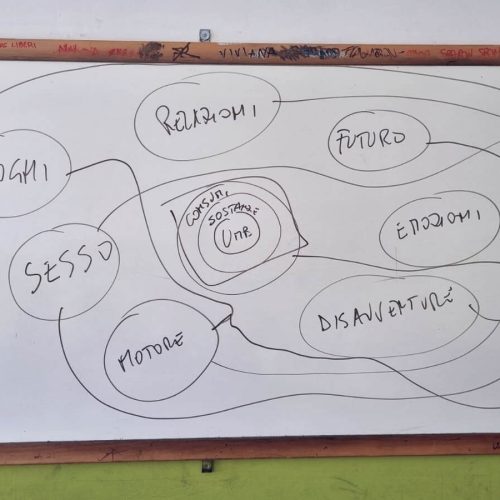 LIBERI
VIVIANA
RELAZIONI
FUTURO
OGHI
CONSUMI
SOSTANZE
UMB
EMOZIONI
SESSO
DISAVVENTURE
MOTORE